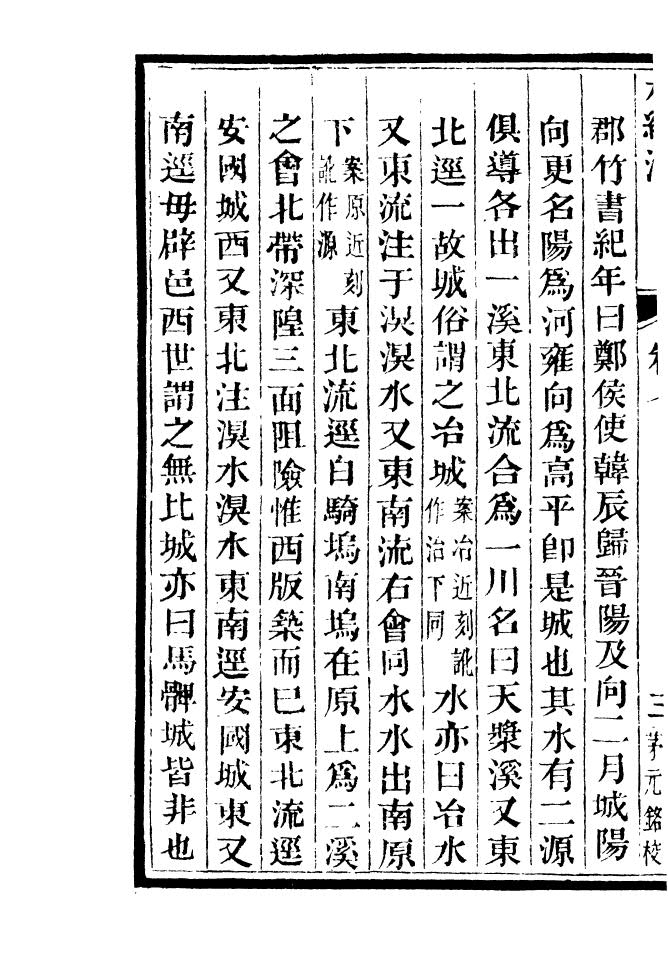 水經注
卷七
三
茅元銘校
郡竹書紀年曰鄭侯使韓辰歸晉陽及向二月城陽
向更名陽爲河雍向爲高平卽是城也其水有二源
俱導各出一溪東北流合爲一川名曰天漿溪又東
北逕一故城俗謂之冶城案冶近刻訛作治下同水亦曰冶水
又東流注于湨湨水又東南流右會同水水出南原
下案原近刻訛作源東北流逕白騎塢南塢在原上爲二溪
之會北帶深隍三面阻險惟西版築而已東北流逕
安國城西又東北注湨水湨水東南逕安國城東又
南逕毋辟邑西世謂之無比城亦曰馬髀城皆非也